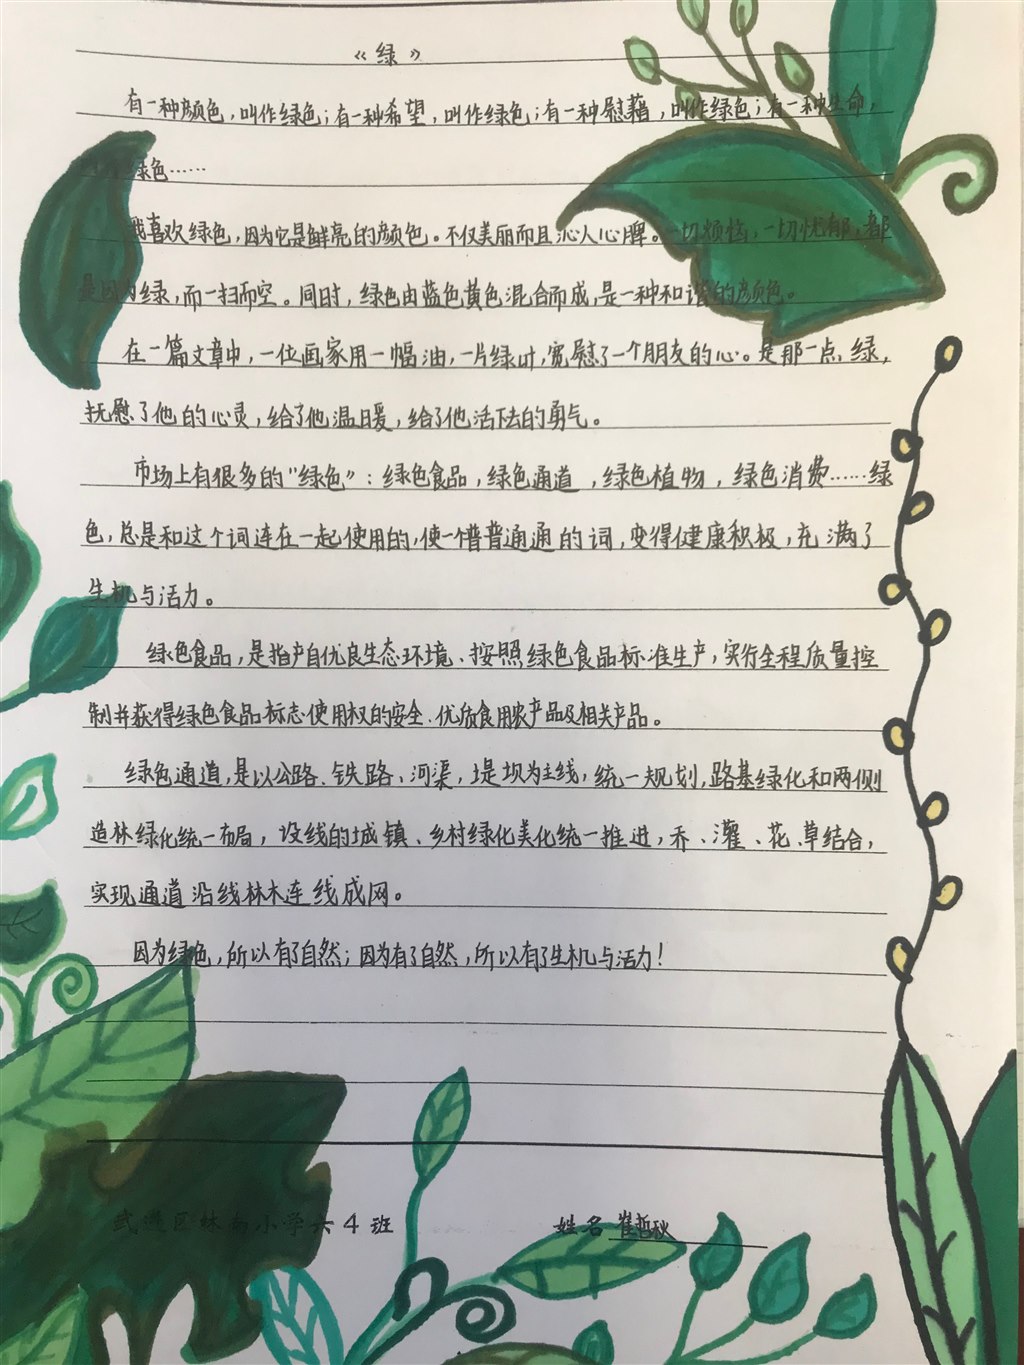 《绿》
有一种颜色，叫作绿色；有一种希望，叫作绿色；有一种慰藉，叫作绿色；有一种生命，
绿色……
我喜欢绿色，因为它是鲜亮的颜色。不仅美丽而且沁人心脾。一切烦恼，一切忧郁，都
是因为绿，而一扫而空。同时，绿色由蓝色黄色混合而成，是一种和谐的颜色。
在一篇文章中，一位画家用一幅油，一片绿叶，宽慰了一个朋友的心。是那一点绿，
抚慰了他的心灵，给了他温暖，给了他活下去的勇气。
市场上有很多的“绿色”：绿色食品，绿色通道，绿色植物，绿色消费……绿
色，总是和这个词连在一起使用的，使一个普普通通的词，变得健康积极，充满了
生机与活力。
绿色食品，是指产自优良生态环境、按照绿色食品标准生产，实行全程质量控
制并获得绿色食品标志使用权的安全、优质食用农产品及相关产品。
绿色通道，是以公路、铁路、河渠，堤坝为主线，统一规划，路基绿化和两侧
造林绿化统一布局，沿线的城镇、乡村绿化美化统一推进，乔、灌、花、草结合，
实现通道沿线林木连线成网。
因为绿色，所以有了自然；因为有了自然，所以有了生机与活力！
武进区林南小学六4班 姓名 崔哲秋